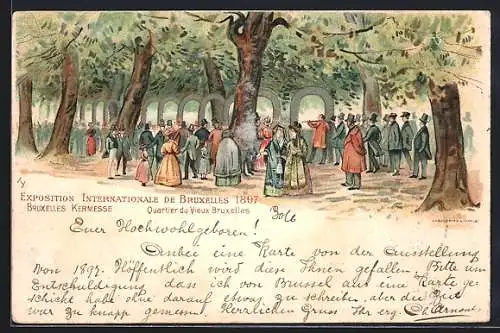 EXPOSITION INTERNATIONALE DE BRUXELLES 1897
BRUXELLES KERMESSE
Quartier du Vieux Bruxelles
Euer Hochwohlgeboren!
Anbei eine Karte von der Ausstellung
von 1897. Hoffentlich wird diese Ihnen gefallen. Bitte um
Entschuldigung dass ich von Brussel aus eine Karte ge-
schickt habe ohne darauf etwas zu schreiben, aber die Zeit
war zu knapp gemessen. Herzlichen Gruss Ihr erg.